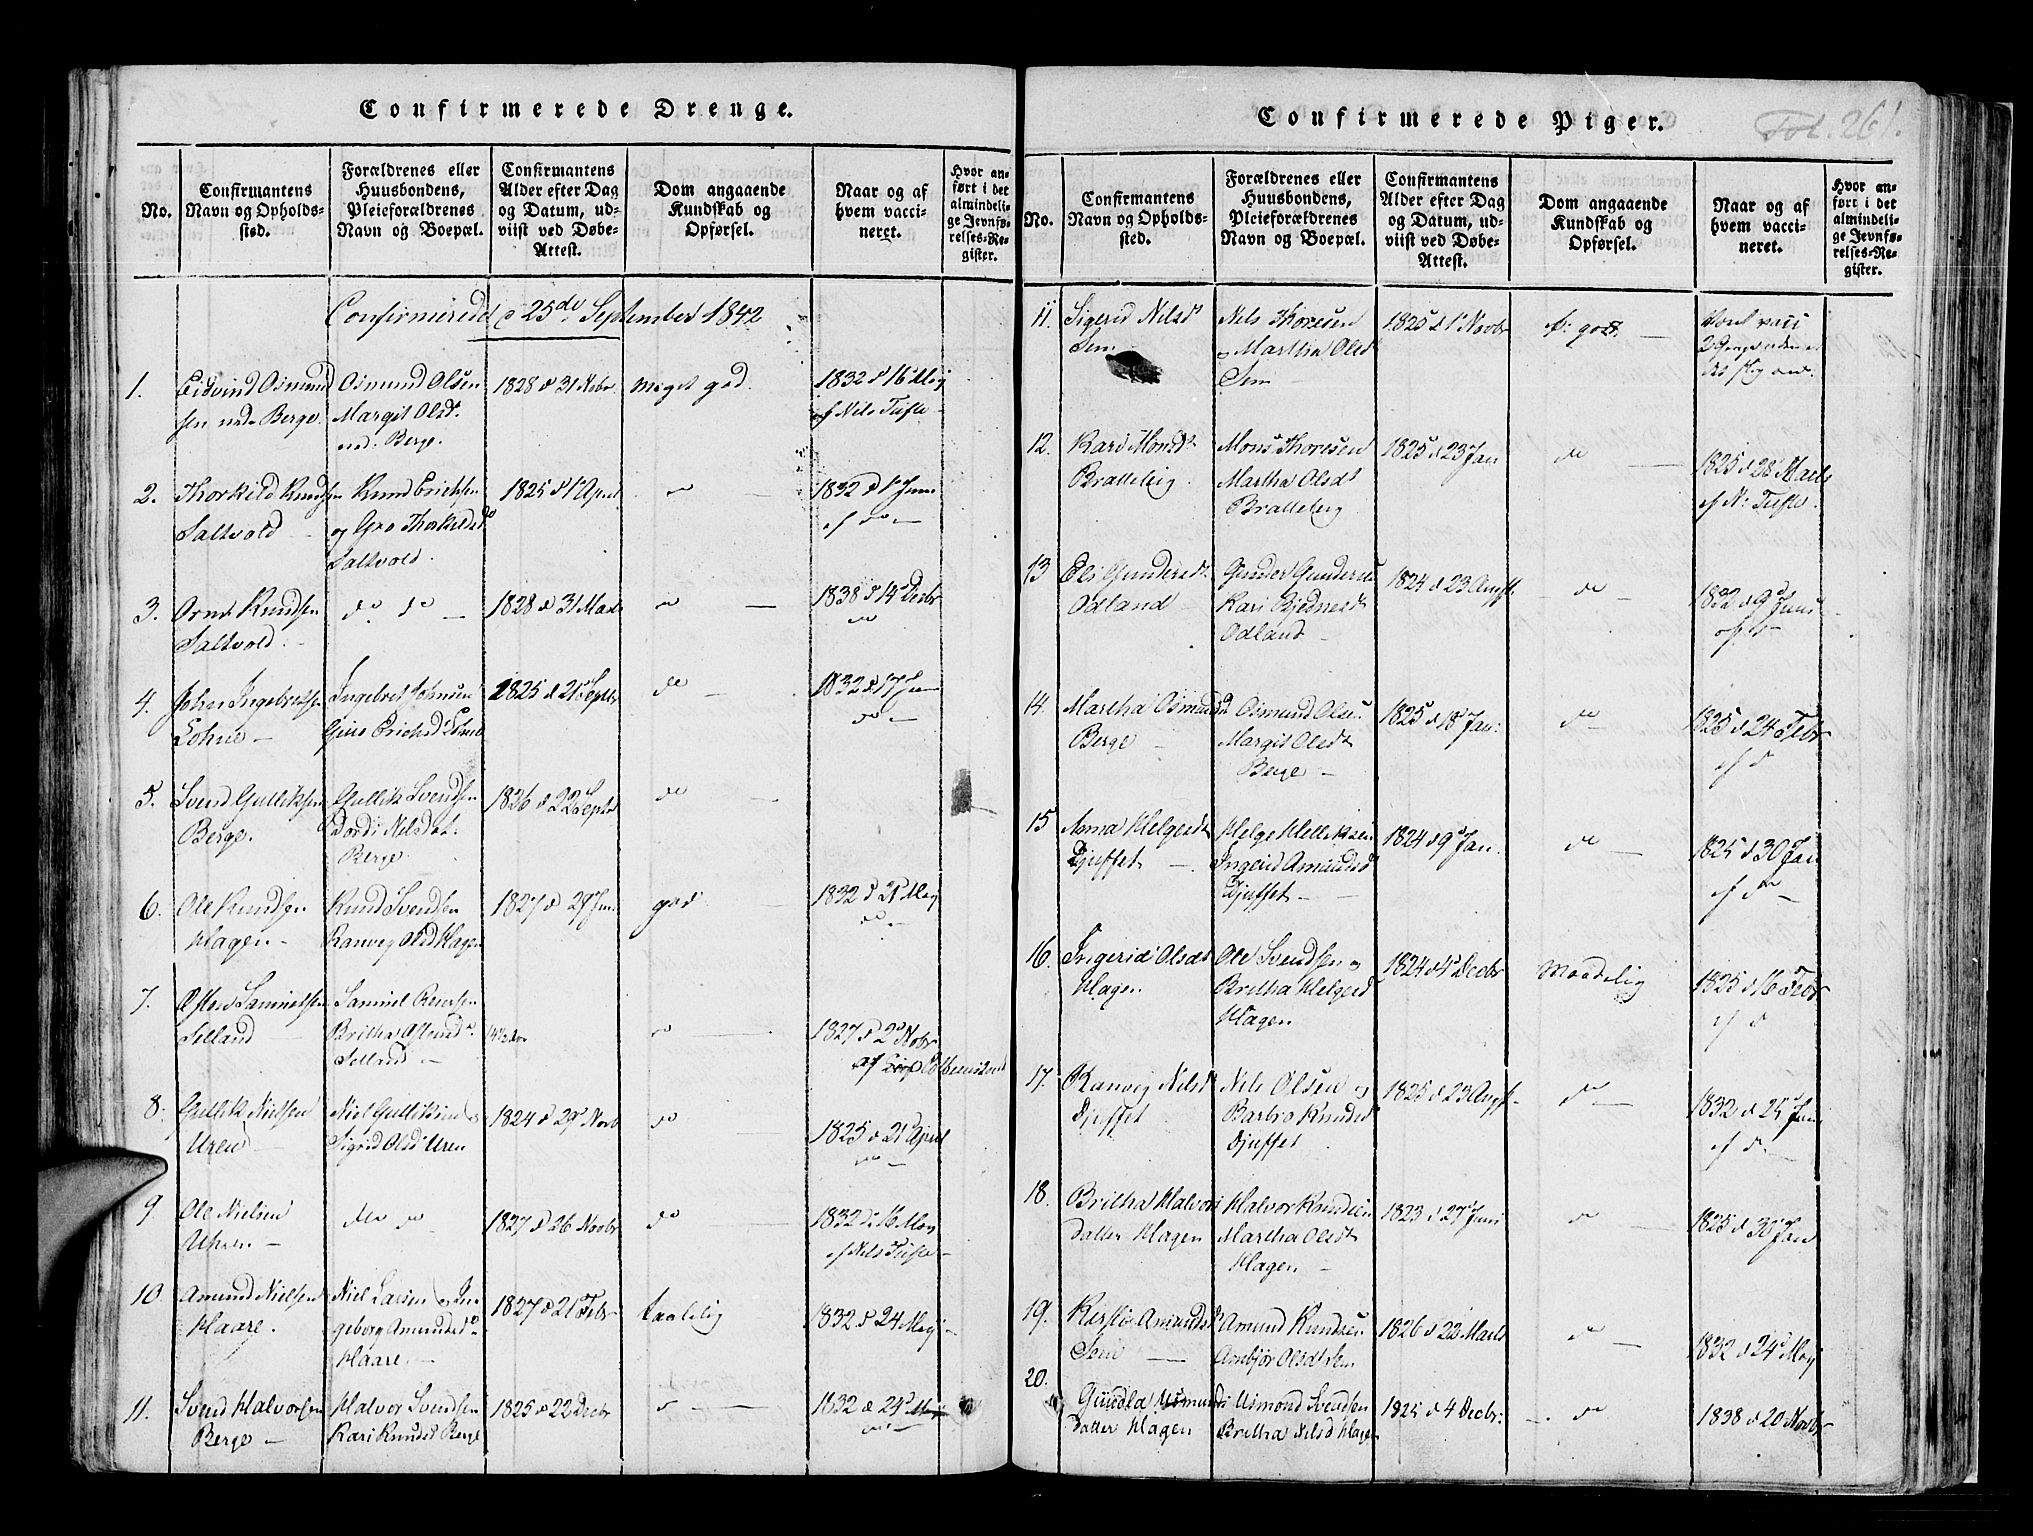 Confirmerede Drenge.
No.
Confirmantens
Navn og Opholds-
sted.
Forældrenes eller
Huusbondens,
Pleieforældrenes
Navn og Boepæl.
Confirmantens
Alder efter Dag
og Datum, ud-
viist ved Døbe-
Attest.
Dom angaaende
Kundskab og
Opførsel.
Naar og af
hvem vacci-
neret.
Hvor an-
ført i det
almindeli-
ge Jevnfø-
relses-Re-
gister.
Confirmered d 25de September 1842
1.
Eidvind Osmund
sen Berge
Osmund Olsen
Margit Olsdt
Berge.
1828 d 31 Novbr
Meget god
1832 d 16 Maj
af Nils Tufte
2.
Thorkild Knudsen
Saltvold
Knud Erichsen
og Gro Thorkildsd
Saltvold.
1825 d 1 April
do
1832 d 1 Juni
af do
3.
Arne Knudsen
Saltvold.
do do
1828 d 31 Mai
do
1838 d 14 Decbr
do
4.
John Ingebretsen
Lohne
Ingebret Johnsen
Erichsd Lohne
1825 d 21 Septbr
do
1832 d 17 Juni
do
5.
Svend Gulliksen
Berge.
Gullik Svendsen
Dordi Nilsdat.
Berge.
1826 d 22 Septbr
do
6.
Ole Knudsen
Hagen
Knud Svendsen
Ranveig Olsd Hagen
1827 d 29 Juni
god
1832 d 21 Maj
do
7.
Samuelsen
Selland
Samuel
Britha
Selland
do
1827 d 2 Novbr
af
8.
Gullik Nielsen
Uren
Niel Gulliksen
Sigrid Olsd Uren
1824 d 29 Novb
do
1825 d 21 April
do
9
Ole Nielsen
Uhren
do
1827 d 26 Novbr
do
1832 d 16 Maj
af Nils Tufte
10.
Amund Nielsen
Haare.
Niel Larsen og In-
geborg Amundsd
Haare
1827 d 21 Febr
taalelig
1832 d 24 Maj
11.
Svend Halvorsen
Berge
Halvor Svendsen
Kari Knudsd Berge
1825 d 22 Decbr
do
1832 d 24 Maj
do
Confirmerede Piger.
Fol. 261.
No.
Confirmantens
Navn og Opholds-
sted.
Forældrenes eller
Huusbondens,
Pleieforældrenes
Navn og Boepæl.
Confirmantens
Alder efter Dag
og Datum, ud-
viist ved Døbe-
Attest.
Dom angaaende
Kundskab og
Opførsel.
Naar og af
hvem vacci-
neret.
Hvor an-
ført i det
almindeli-
ge Jevnfø-
relses-Re-
gister.
11.
Sigrid Nilsd
Sem
Nels Thoresen
og Martha Olsd
Sem
1825 d 1 Novbr
god.
12.
Kari Monsdt
Bratteleig
Mons Thoresen
Martha Olsdt
Bratteleig
1825 d 23 Jan
do
1825 d 28 Marts
af N: Tufte.
13
Eli Gundersdt
Odland
Gunder Gundersen
Kari
Odland
1824 d 23 Augst
do
1832 d 9 Juni
af do
14.
Martha Osmundsd
Berge
Osmund Olsen
Margit Olsdt
Berge
1825 d 18 Jan:
do
1825 d 24 Febr
af d
15
Anna Helgesdt
Djuffet
Helge Helleksen
Ingerid Amundsd
Djuffet
1824 d 9 Jan.
do
1825 d 30 Jan
af do
16.
Ingerid Olsdt
Hagen
Ole Svendsen og
Britha Helgesd
Hagen
1824 d 4 Decbr
Maadelig
1825 d 16 Febr
af d
17.
Ranveig Nilsdt
Djuffet
Nils Olsen og
Barbro Knudsd
Djuffet
1825 d 23 Augst
do
1832 d 25 Juni
af d
18
Britha Halvors
datter Hagen
Halvor Knudsen
Martha Olsdt
Hagen
1823 d 27 Juni
do
1825 d 30 Jan
19.
Kirsti Amundsd
Sem
Amund Knudsen
Anbjør Olsdt Sem
1826 d 22 Marts
do
1832 d 24 Maj
20.
Gunild Asmunds
datter Hagen
Asmond Svendsen
Britha Nilsd Hagen
1825 d 4 Decbr:
do
1838 d 20 Novbr